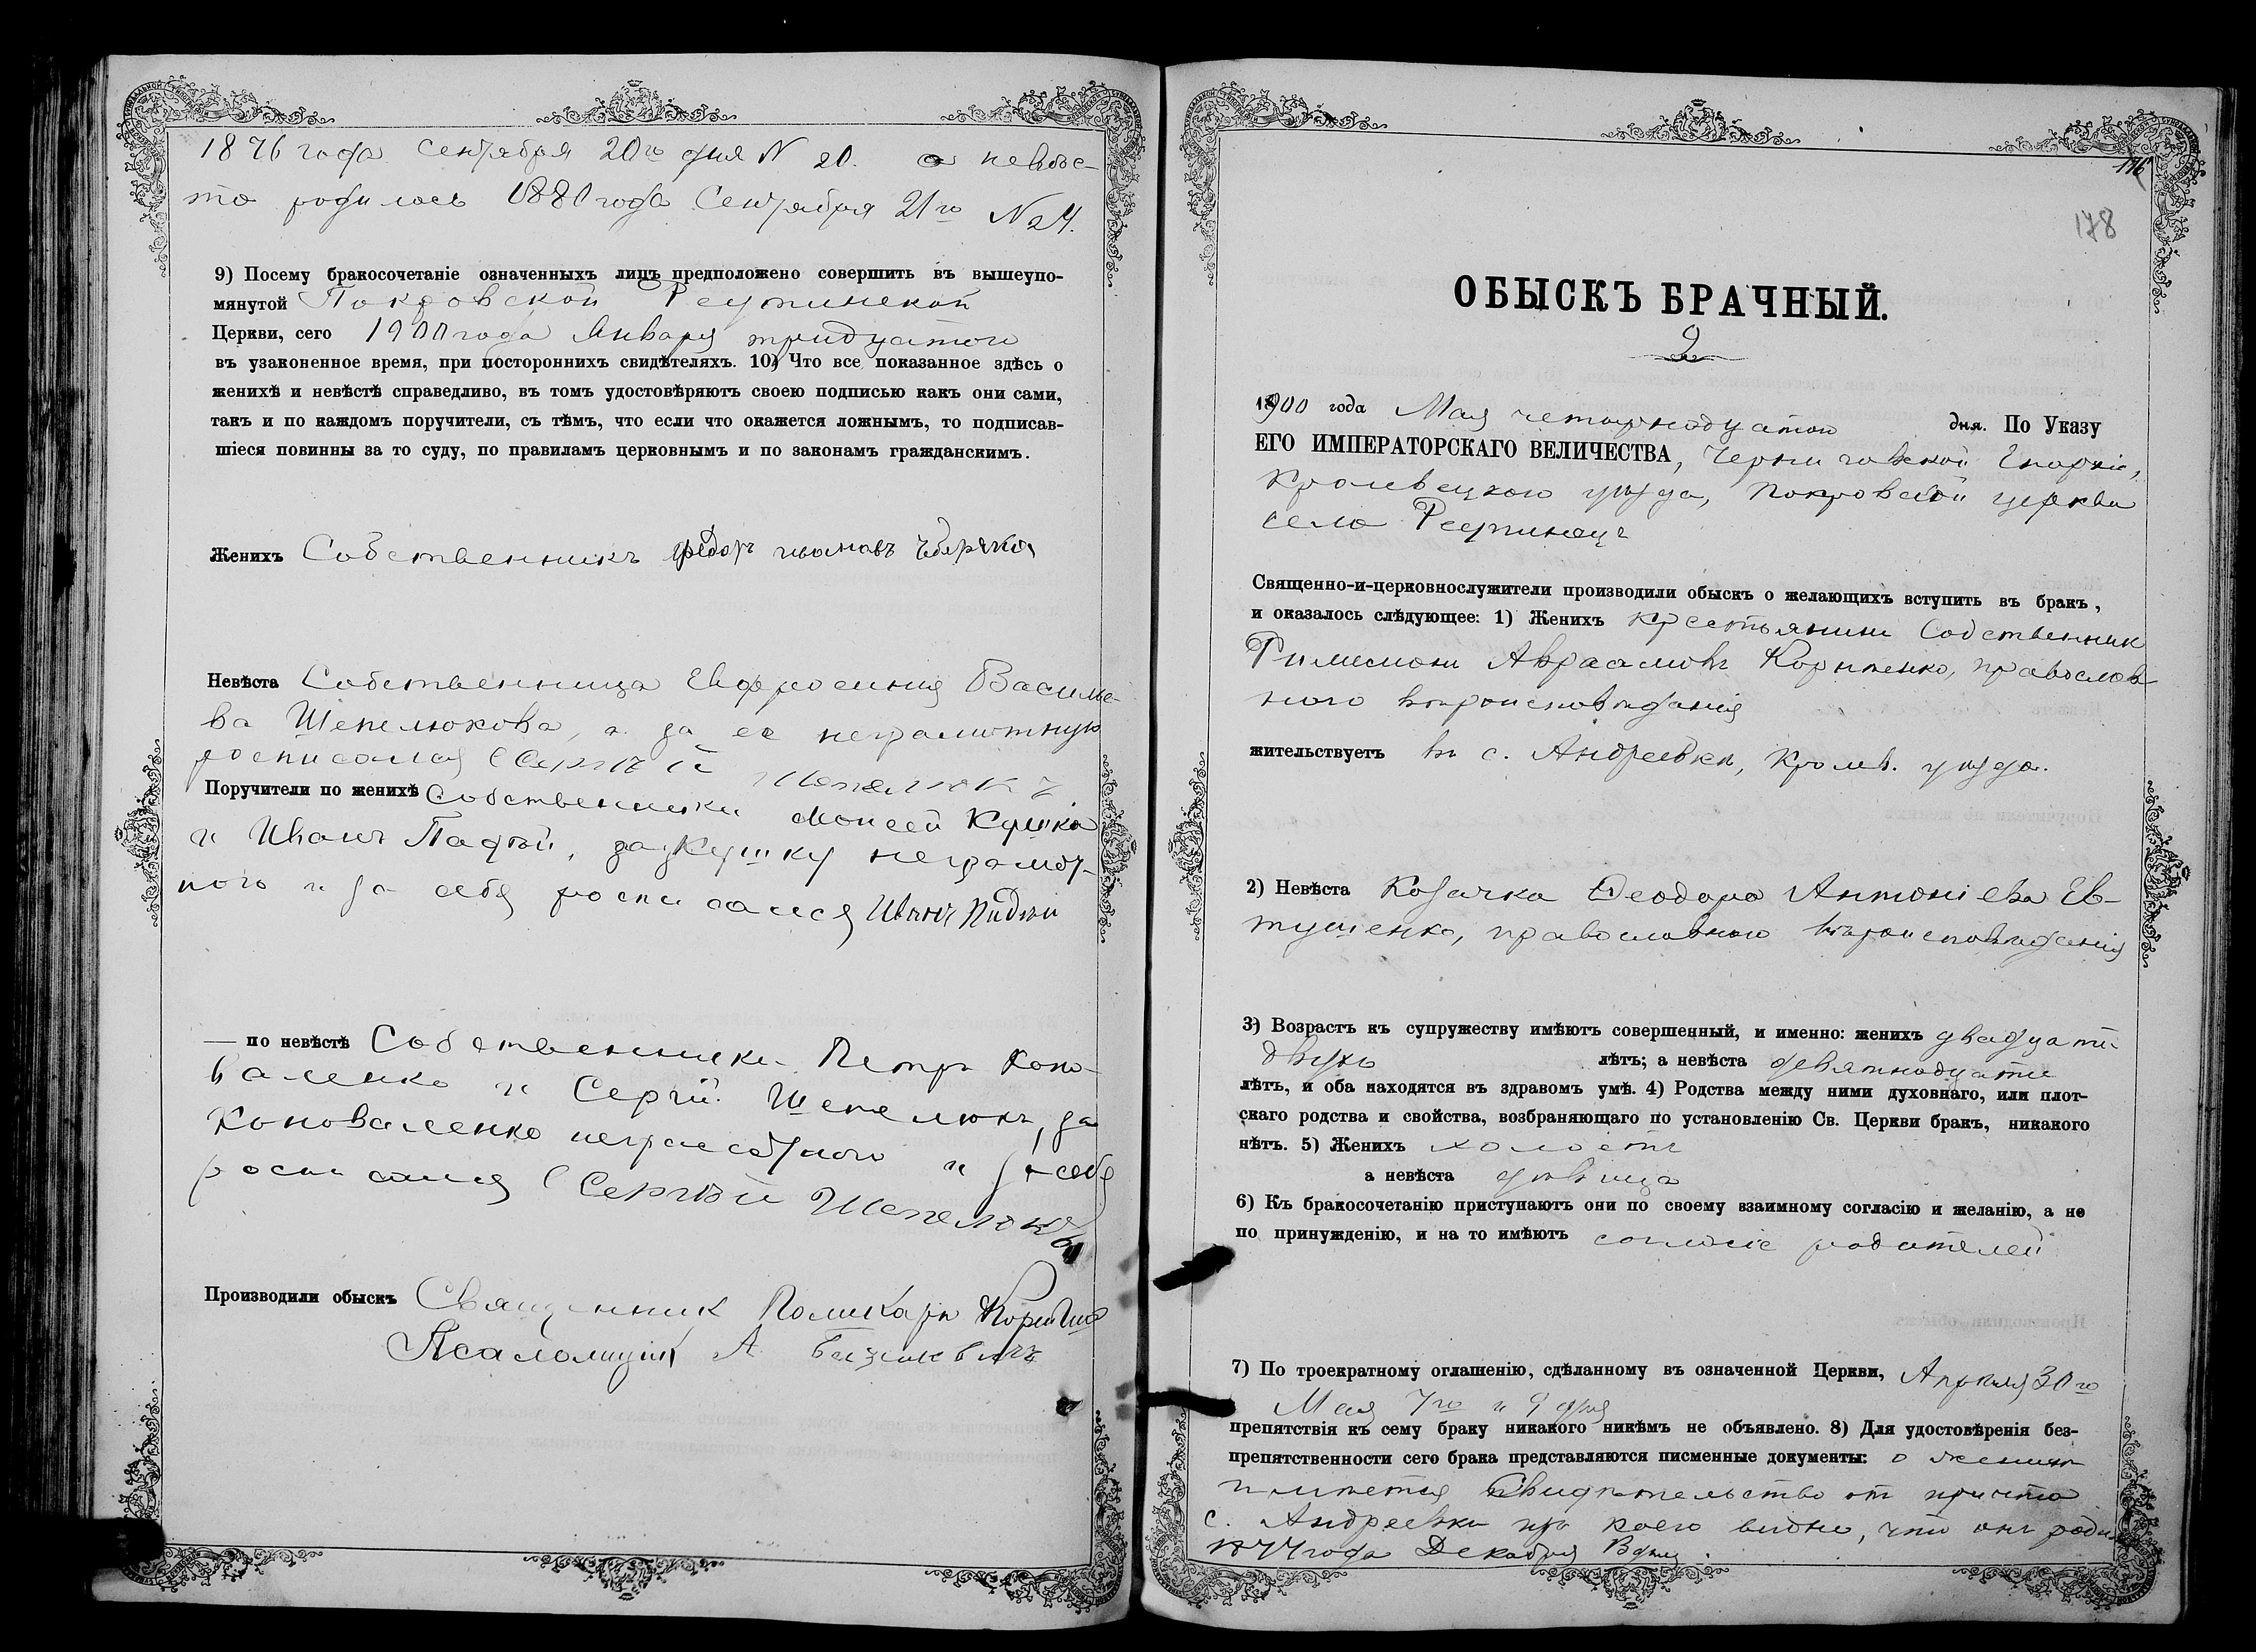 1876 года Сентября 20го дня N 20. а невѣс-
та родилась 1880 года Сентября 21го N 24.
9) Посему бракосочетаніе означенныхъ лицъ предположено совершить въ вышеупо-
мянутой Покровской Реутинской
Церкви, сего 1900 года Января тридцатого
въ узаконенное время, при постороннихъ свидѣтеляхъ. 10) Что все показанное здѣсь о
женихѣ и невѣстѣ справедливо, въ томъ удостовѣряютъ своею подписью какъ они сами,
такъ и по каждомъ поручители, съ тѣмъ, что если что окажется ложнымъ, то подписав-
шіеся повинны за то суду, по правиламъ церковнымъ и по законамъ гражданскимъ.
Женихъ Собственникъ
Невѣста Собственница Евфросинія Василье-
ва Шепелюкова, а за ее неграмотную
росписался Сергѣй Шепелюкъ
Поручители по женихѣ Собственники Моисей Кушка
и Иванъ Падтъй, за Кушку неграмот-
ного и за себя росписался Иванъ
— по невѣстѣ Собственники Петръ Коно-
валенко и Сергій Шепелюкъ, за
Коноваленко неграмотного и за себя
росписался Сергѣй Шепелюкъ
Производили обыскъ Священникъ Поликарпъ
Псаломщикъ А.
176
178
ОБЫСКЪ БРАЧНЫЙ.
2
1900 года Мая четырнадцатого дня. По Указу
ЕГО ИМПЕРАТОРСКАГО ВЕЛИЧЕСТВА, Черниговской Епархіи,
Кролевецкого уѣзда, Покровской церкви
села Реутинецъ
Священно-и-церковнослужители производили обыскъ о желающихъ вступить въ бракъ,
и оказалось слѣдующее: 1) Женихъ Крестьянинъ Собственник
Филимонъ Авраамовъ Корниенко, православ-
ного вѣроисповѣданія
жительствуетъ въ с. Андреевки, Кролев. уѣзда.
2) Невѣста Козачка Феодора Антоніева Ев-
тушенко, православного вѣроисповѣданія
3) Возрастъ къ супружеству имѣютъ совершенный, и именно: женихъ двадцати
двухъ лѣтъ; а невѣста девятнадцати
лѣтъ, и оба находятся въ здравомъ умѣ. 4) Родства между ними духовнаго, или плот-
скаго родства и свойства, возбраняющаго по установленію Св. Церкви бракъ, никакого
нѣтъ. 5) Женихъ холостъ
а невѣста дѣвица
6) Къ бракосочетанію приступаютъ они по своему взаимному согласію и желанію, а не
по принужденію, и на то имѣютъ согласіе родителей
7) По троекратному оглашенію, сдѣланному въ означенной Церкви, Апрѣля 30го
Мая 7го и 9 дня
препятствія къ сему браку никакого никѣмъ не объявлено. 8) Для удостовѣренія без-
препятственности сего брака представляются писменные документы: о женихѣ
имѣется Свидѣтельство от причта
с. Андреевки изъ коего видно, что онъ роди.
1877 года Декабря дня.